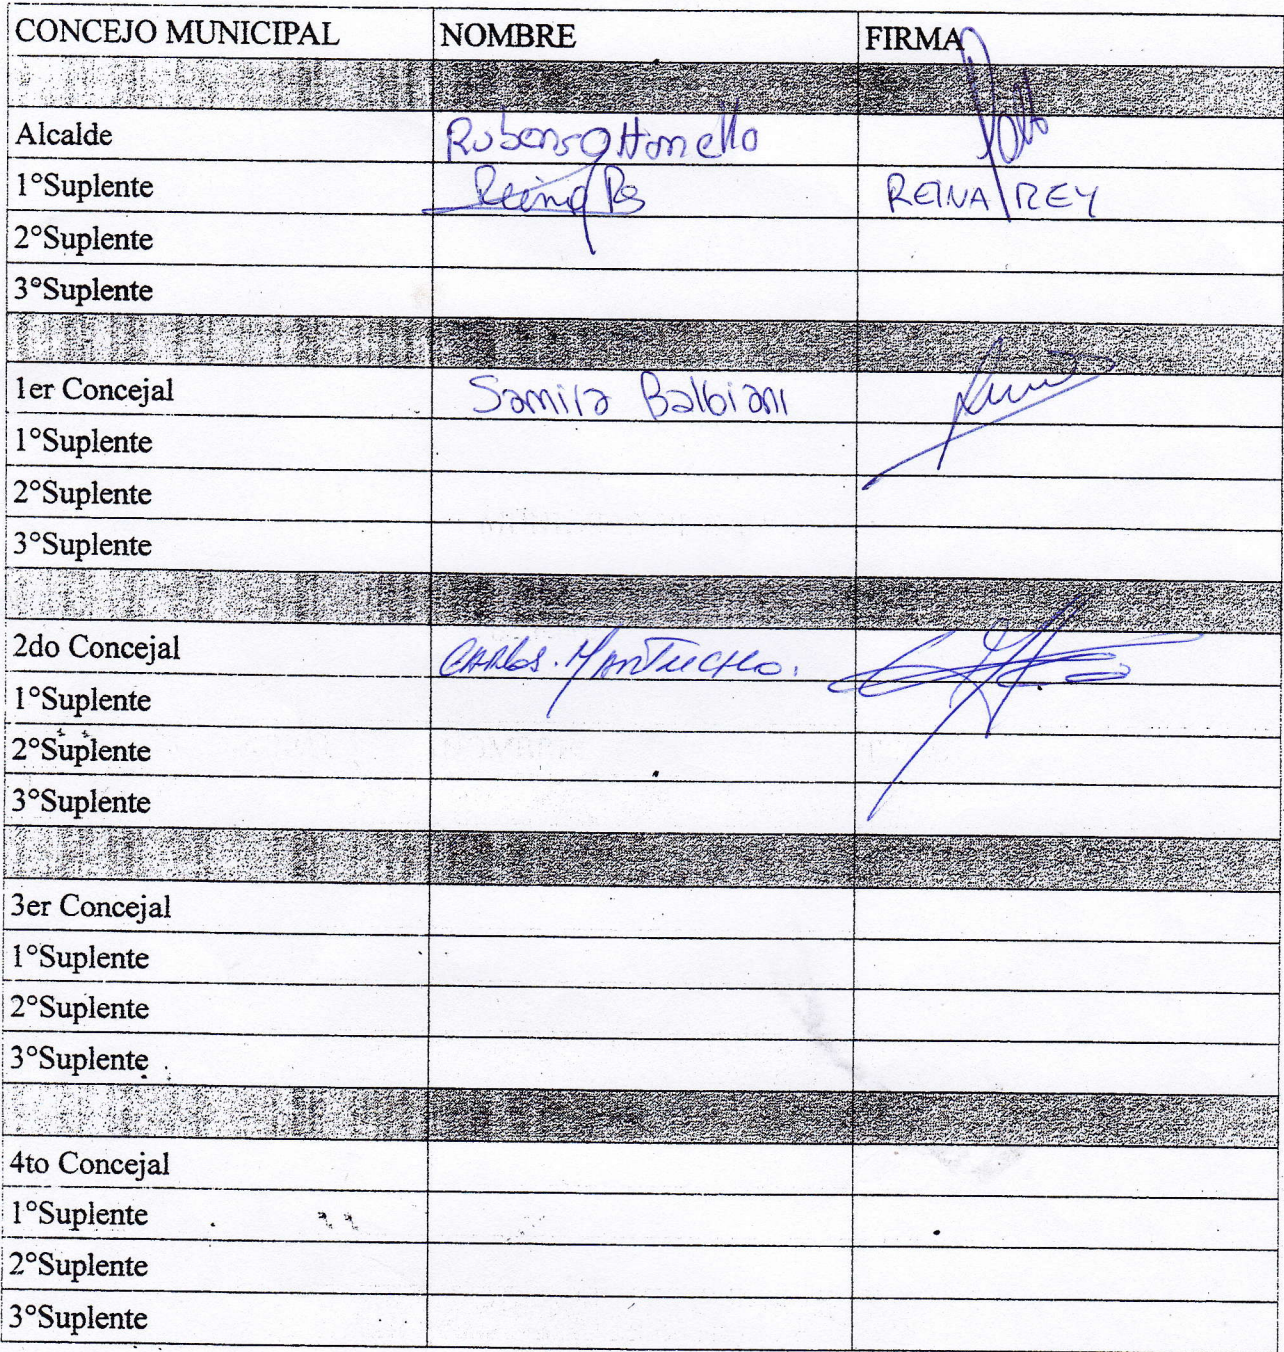 CONCEJO MUNICIPAL NOMBRE FIRMA
Alcalde Rubens Ottonello
1°Suplente Reina REINA REY
2°Suplente
3°Suplente
1er Concejal Samira Balbiani
1°Suplente
2°Suplente
3°Suplente
2do Concejal CARLOS. MANTUCHO.
1°Suplente
2°Suplente
3°Suplente
3er Concejal
1°Suplente
2°Suplente
3°Suplente
4to Concejal
1°Suplente
2°Suplente
3°Suplente